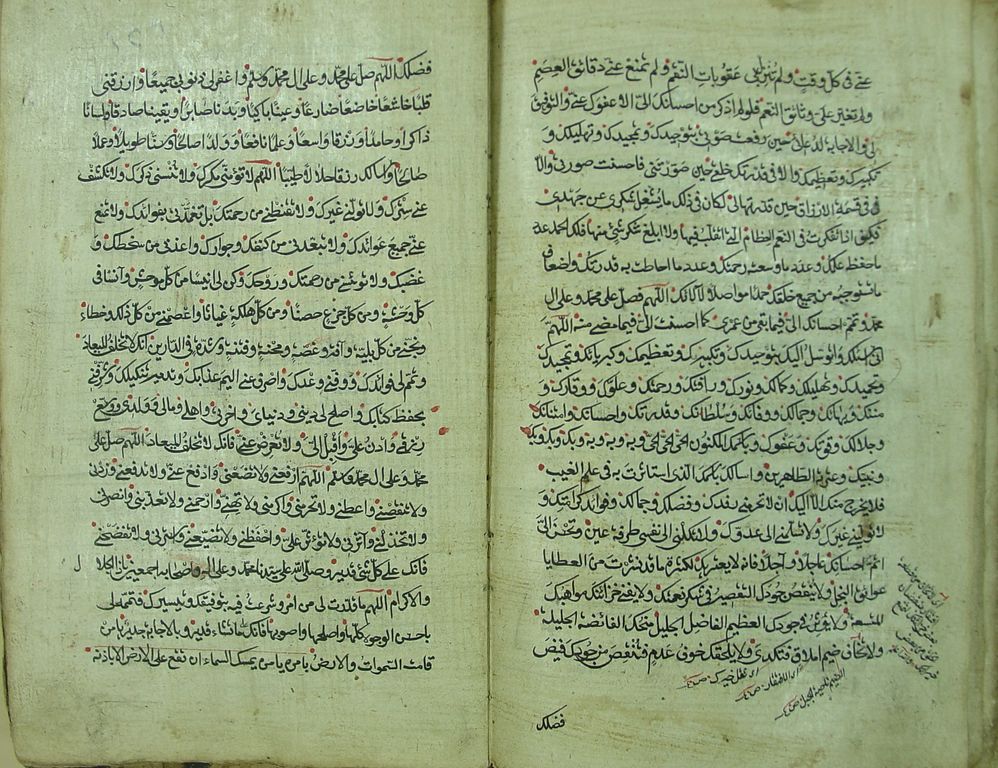 عني في كل وقت ولم تنزل بي عقوبات النقم ولم تمنع عني دقائق العصم
ولم تغير علي وثائق النعم فلو لم اذكر من احسانك الي الا عفوك عني والتوفيق
لي والاجابة لدعائي حين رفعت صوتي بتوحيدك وتمجيدك وتهليلك و
تكبيرك وتعظيمك والا في تقديرك خلقي حين صورتني فاحسنت صورتي والا
في قسمة الارزاق حين قدرتها لي لكان في ذلك ما يشغل شكري عن جهدي
فكيف اذا تفكرت في النعم العظام التي اتقلب فيها ولا ابلغ شكر شئ منها فلك الحمد عدد
ما حفظ علمك وعدد ما وسعته رحمتك وعدد ما احاطت به قدرتك واضعاف
ما تستوجبه من جميع خلقك حمدا مواصلا لآلائك اللهم فصل على محمد وعلى ال
محمد وتمم احسانك الي فيما بقي من عمري كما احسنت الي فيما مضى منه اللهم
اني اسئلك واتوسل اليك بتوحيدك وتكبيرك وتعظيمك وكبريائك وتمجيدك
وتحميدك وتهليلك وكمالك ونورك ورأفتك ورحمتك وعلوك ووقارك و
منك وبهائك وجمالك وسلطانك وقدرتك واحسانك وامتنانك
وجلالك وقوتك وعفوك وباسمك المكنون
ونبيك وعترته الطاهرين واسالك باسمك الذي استأثرت به في علم الغيب
فلا يخرج منك الا اليك ان لا تحرمني رفدك وفضلك وجمالك وفوائد كرامتك و
لا تولني غيرك ولا تسلمني الى عدوك ولا تكلني الى نفسي طرفة عين وتحسن الي
اتم احسانك عاجلا وآجلا فانه لا يعتريك لكثرة ما قد نشرت من العطايا
عوائق البخل ولا ينقص جودك التقصير في شكر نعمتك ولا يفني خزائنك مواهبك
المتسعة ولا يؤثر في جودك العظيم الفاضل الجليل منحك الفائضة الجليلة
ولا تخاف ضيم املاق فتكدي ولا يلحقك خوف عدم فينقص من جودك فيض
فضلك
فضلك اللهم صل على محمد وعلى ال محمد وسلم واغفر لي ذنوبي جميعا وارزقني
قلبا خاشعا خاضعا ضارعا وعينا باكية وبدنا صابرا ويقينا صادقا ولسانا
ذاكرا وحامدا ورزقا واسعا وعلما نافعا وولدا صالحا وسنا طويلا وعملا
صالحا واسالك رزقا حلالا طيبا اللهم لا تؤمني مكرك ولا تنسني ذكرك ولا تكشف
عني سترك ولا تولني غيرك ولا تقنطني من رحمتك بل تغمدني بفوائدك ولا تمنع
عني جميع عوائدك ولا تبعدني من كنفك وجوارك واعذني من سخطك و
غضبك ولا تؤيسني من رحمتك وروحك وكن لي انيسا من كل موحش وآنسا في
كل وحشة ومن كل جزع حصنا ومن كل هلكة غياثا واعصمني من كل ذلك وخطاء
ونجني من كل بلية وآفة وغصة ومحنة وفتنة وشدة في الدارين انك لا تخلف الميعاد
وتمم لي فوائدك ووقني وعدك واصرف عني اليم عذابك وتدمير تنكيلك وشرفني
بحفظ كتابك واصلح لي ديني ودنياي واخرتي واهلي ومالي وولدي ووسع
رزقي وادر علي واقبل الي ولا تعرض عني فانك لا تخلف الميعاد اللهم صل على
محمد وعلى ال محمد وسلم اللهم ارفعني ولا تضعني وادفع عني ولا تدفعني وزدني
ولا تنقصني واعطني ولا تحرمني واكرمني ولا تهني وارحمني ولا تعذبني وانصرني
ولا تخذلني وآثرني ولا تؤثر علي واحفظني ولا تضيعني واسترني ولا تفضحني
فانك على كل شئ قدير وصلى الله على سيدنا محمد وعلى اله واصحابه اجمعين يا ذا الجلال
والاكرام اللهم ما قدرت لي من امر وشرعت فيه بتوفيقك وتيسيرك فتممه لي
باحسن الوجوه كلها واصلحها واصوبها فانك على ما تشاء قدير وبالاجابة جدير يا من
قامت السموات والارض بامره يا من يمسك السماء ان تقع على الارض الا باذنه